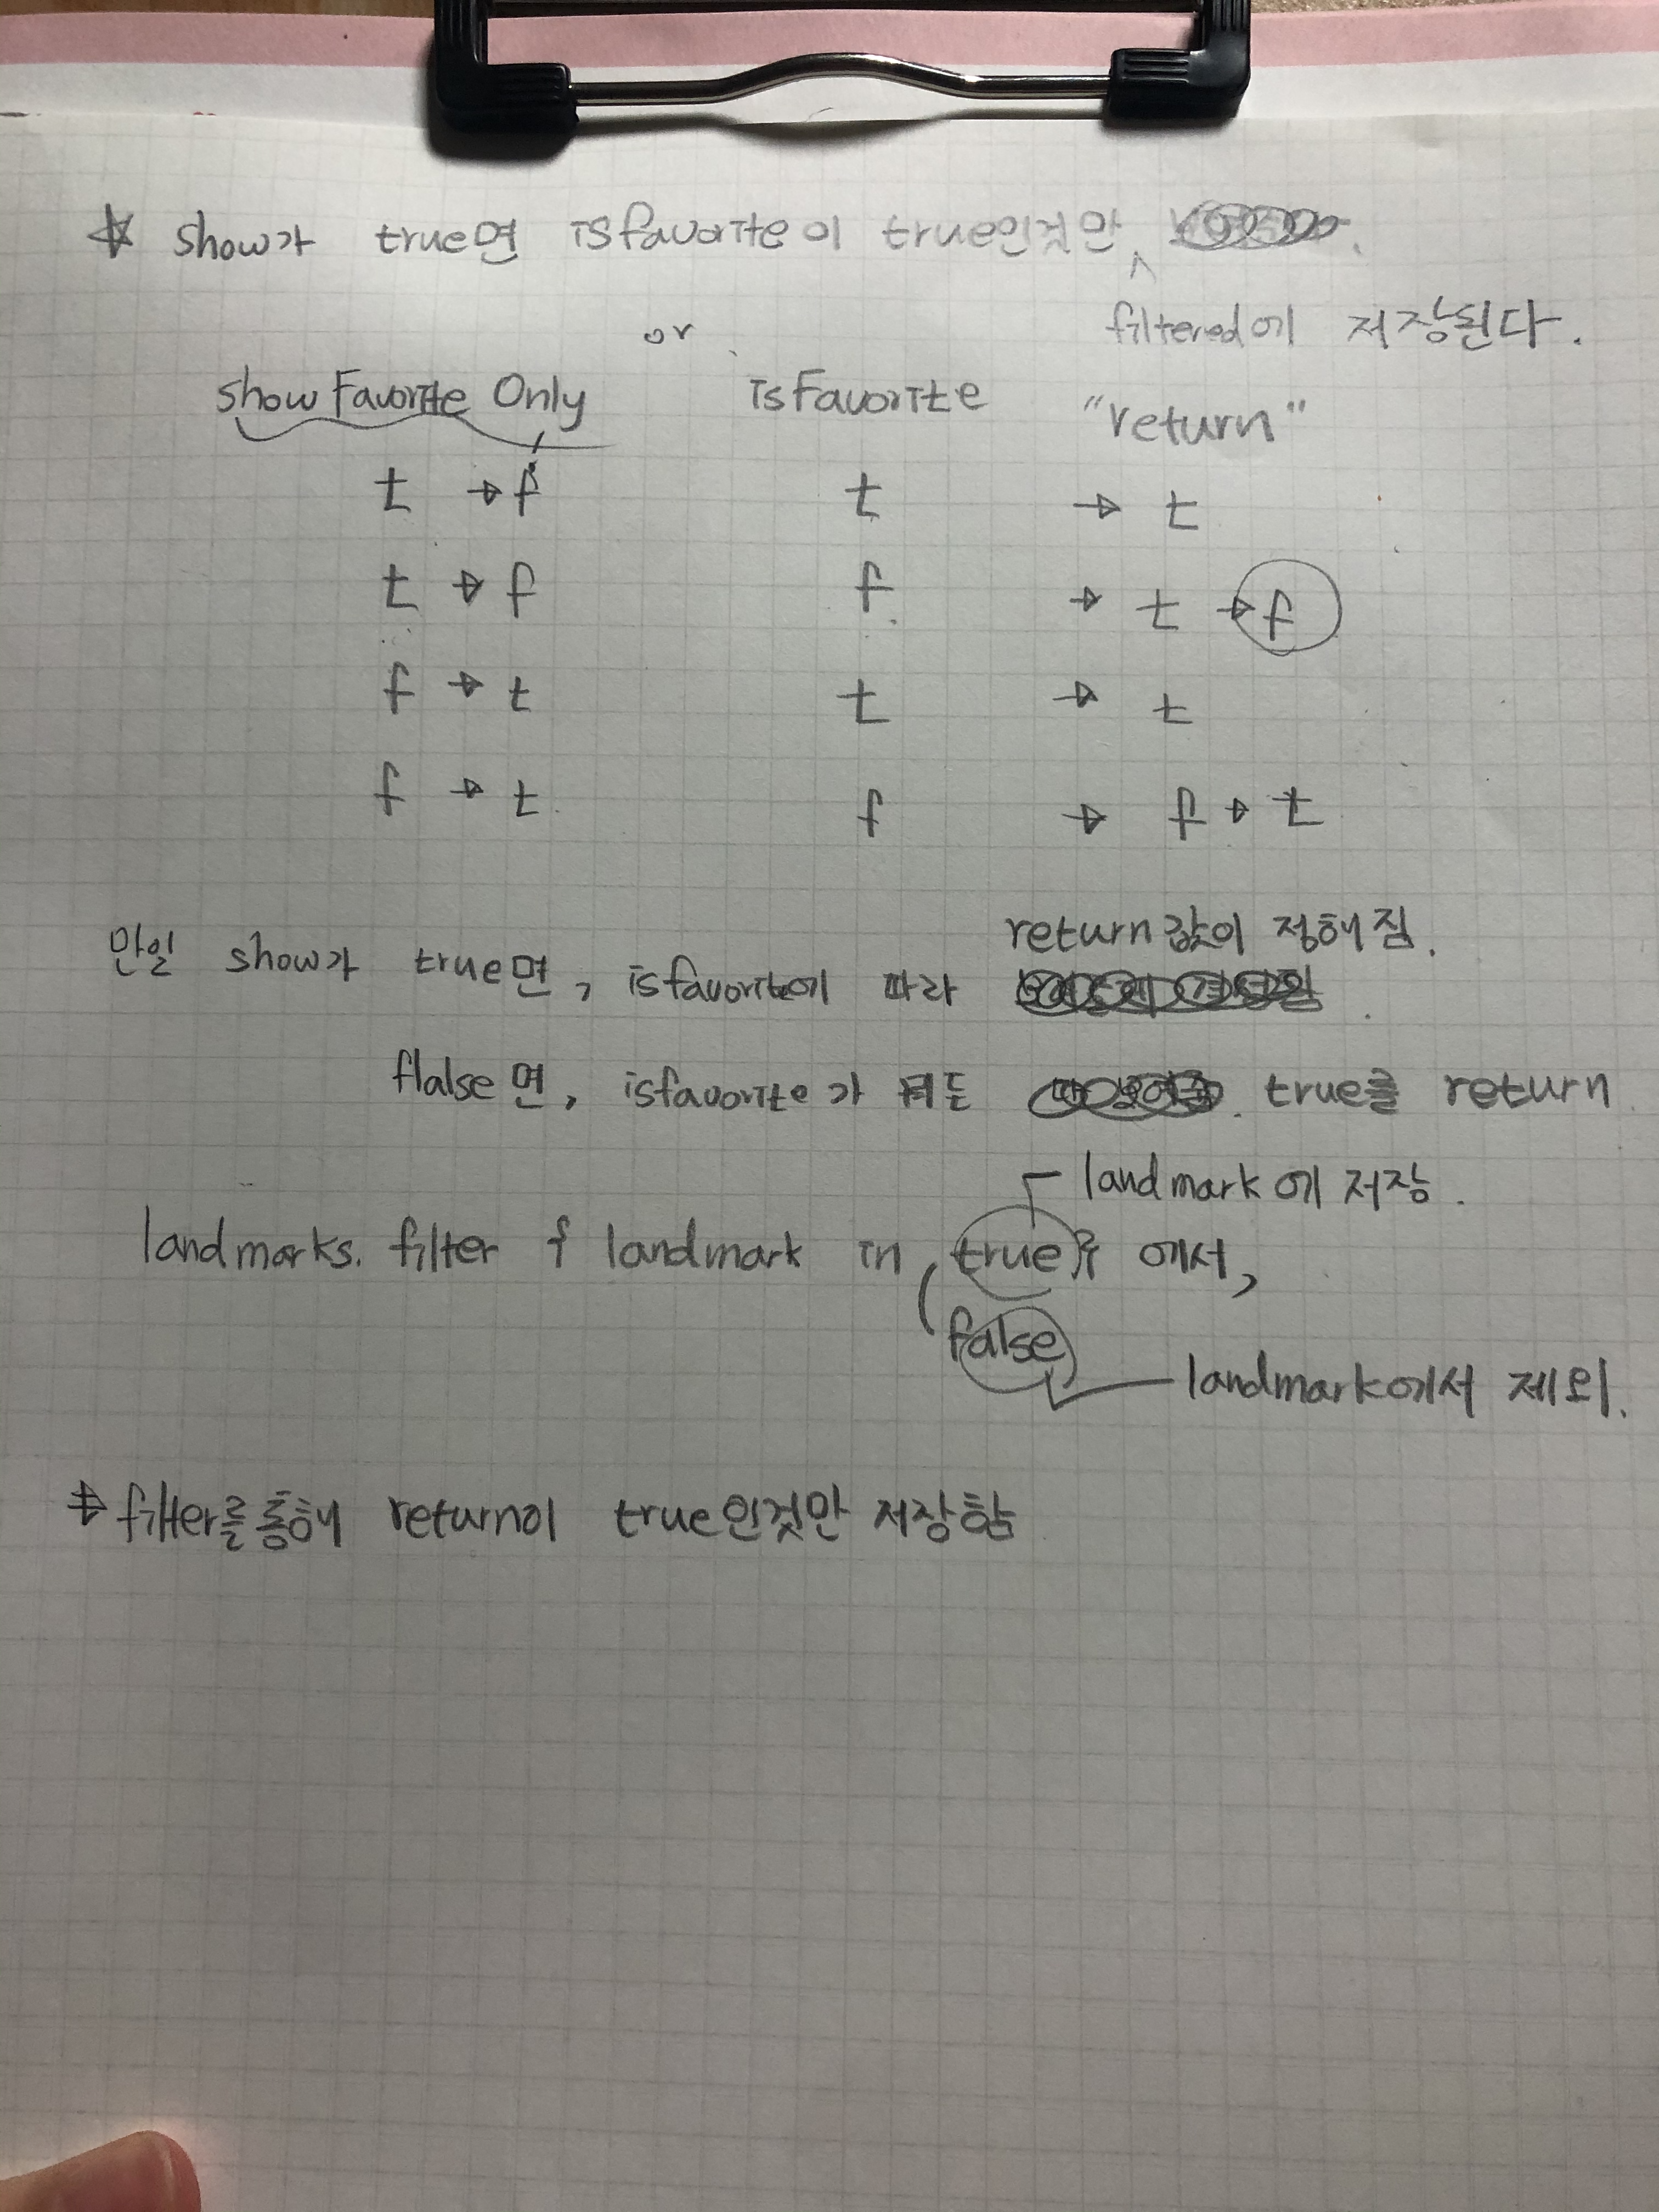 ☆ show가 true면 isfavorite이 true인것만
filtered에 저장된다.
or
showFavorite Only isFavorite "return"
t → f t → t
t → f f → t → f
f → t t → t
f → t f → f → t
return값이 정해짐.
만일 show가 true면, isfavorite에 따라
flalse면, isfavorite가 뭐든 true를 return
landmark에 저장.
landmarks. filter { landmark in true } 에서,
false
landmark에서 제외.
→ filter를통해 return이 true인것만 저장함